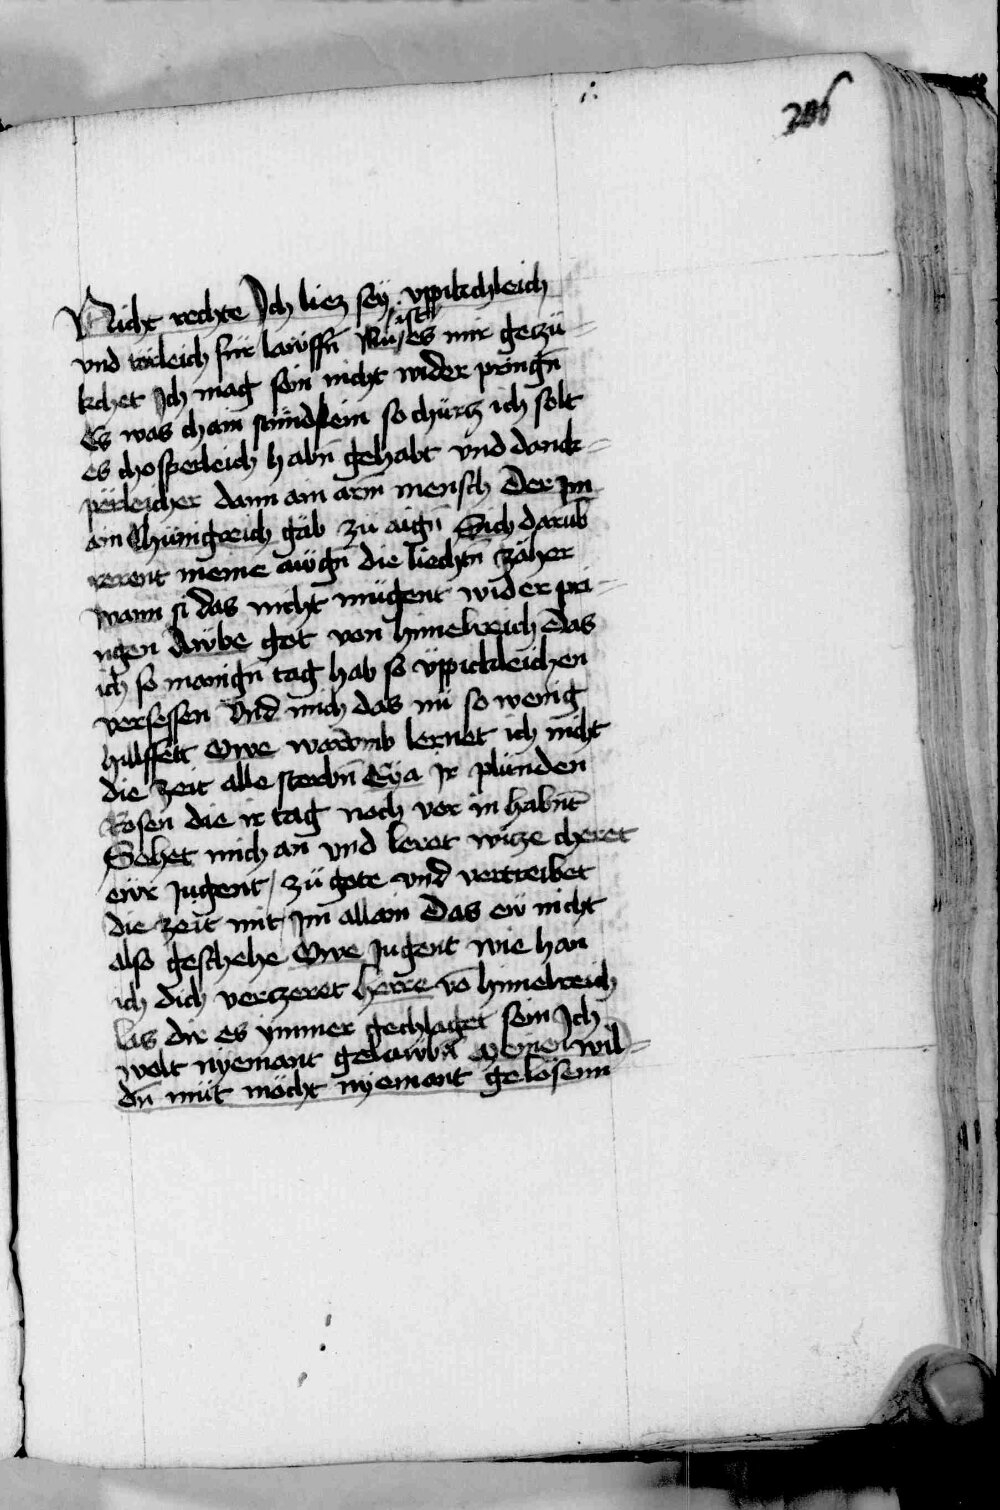 206
Nicht rechte Ich liez sey vppikchleich
vnd törleich für lawffn̄ Nu ist es mir gezü=
kchet Ich mag sein nicht wider pringn̄
Es was chain stündlein so chürcz ich solt
es chosperleich habn̄ gehabt vnd danck=
përleicher dann ain arm mensch Der im
ain Chünigreich gäb zü aign̄ Sich darūb
rerent meine awgn̄ die liechtn̄ zäher
wann si das nicht mügent wider pri=
ngen Awbe got von himelreich Das
ich so manign̄ tag hab so üppickleichen
versessen Vnd mich das nü so wenig
hillffett Owe warvmb lernet ich nicht
die zeit alle sterbn̄ Eya Ir plünden
Rosen die ir tag noch vor in habnt
Sehet mich an vnd leret wicze cheret
ewr Jugent zü gote vnd vertreibet
die zeit mit Im allain Das ew nicht
also geschehe Owe Jugent wie han
ich dich verczeret herre vō himelreich
las dir es ymmer gechlaget sein Ich
wolt nyemant gelawbn̄ Meinen wil=
dn̄ müt möcht nyemant gelösenn